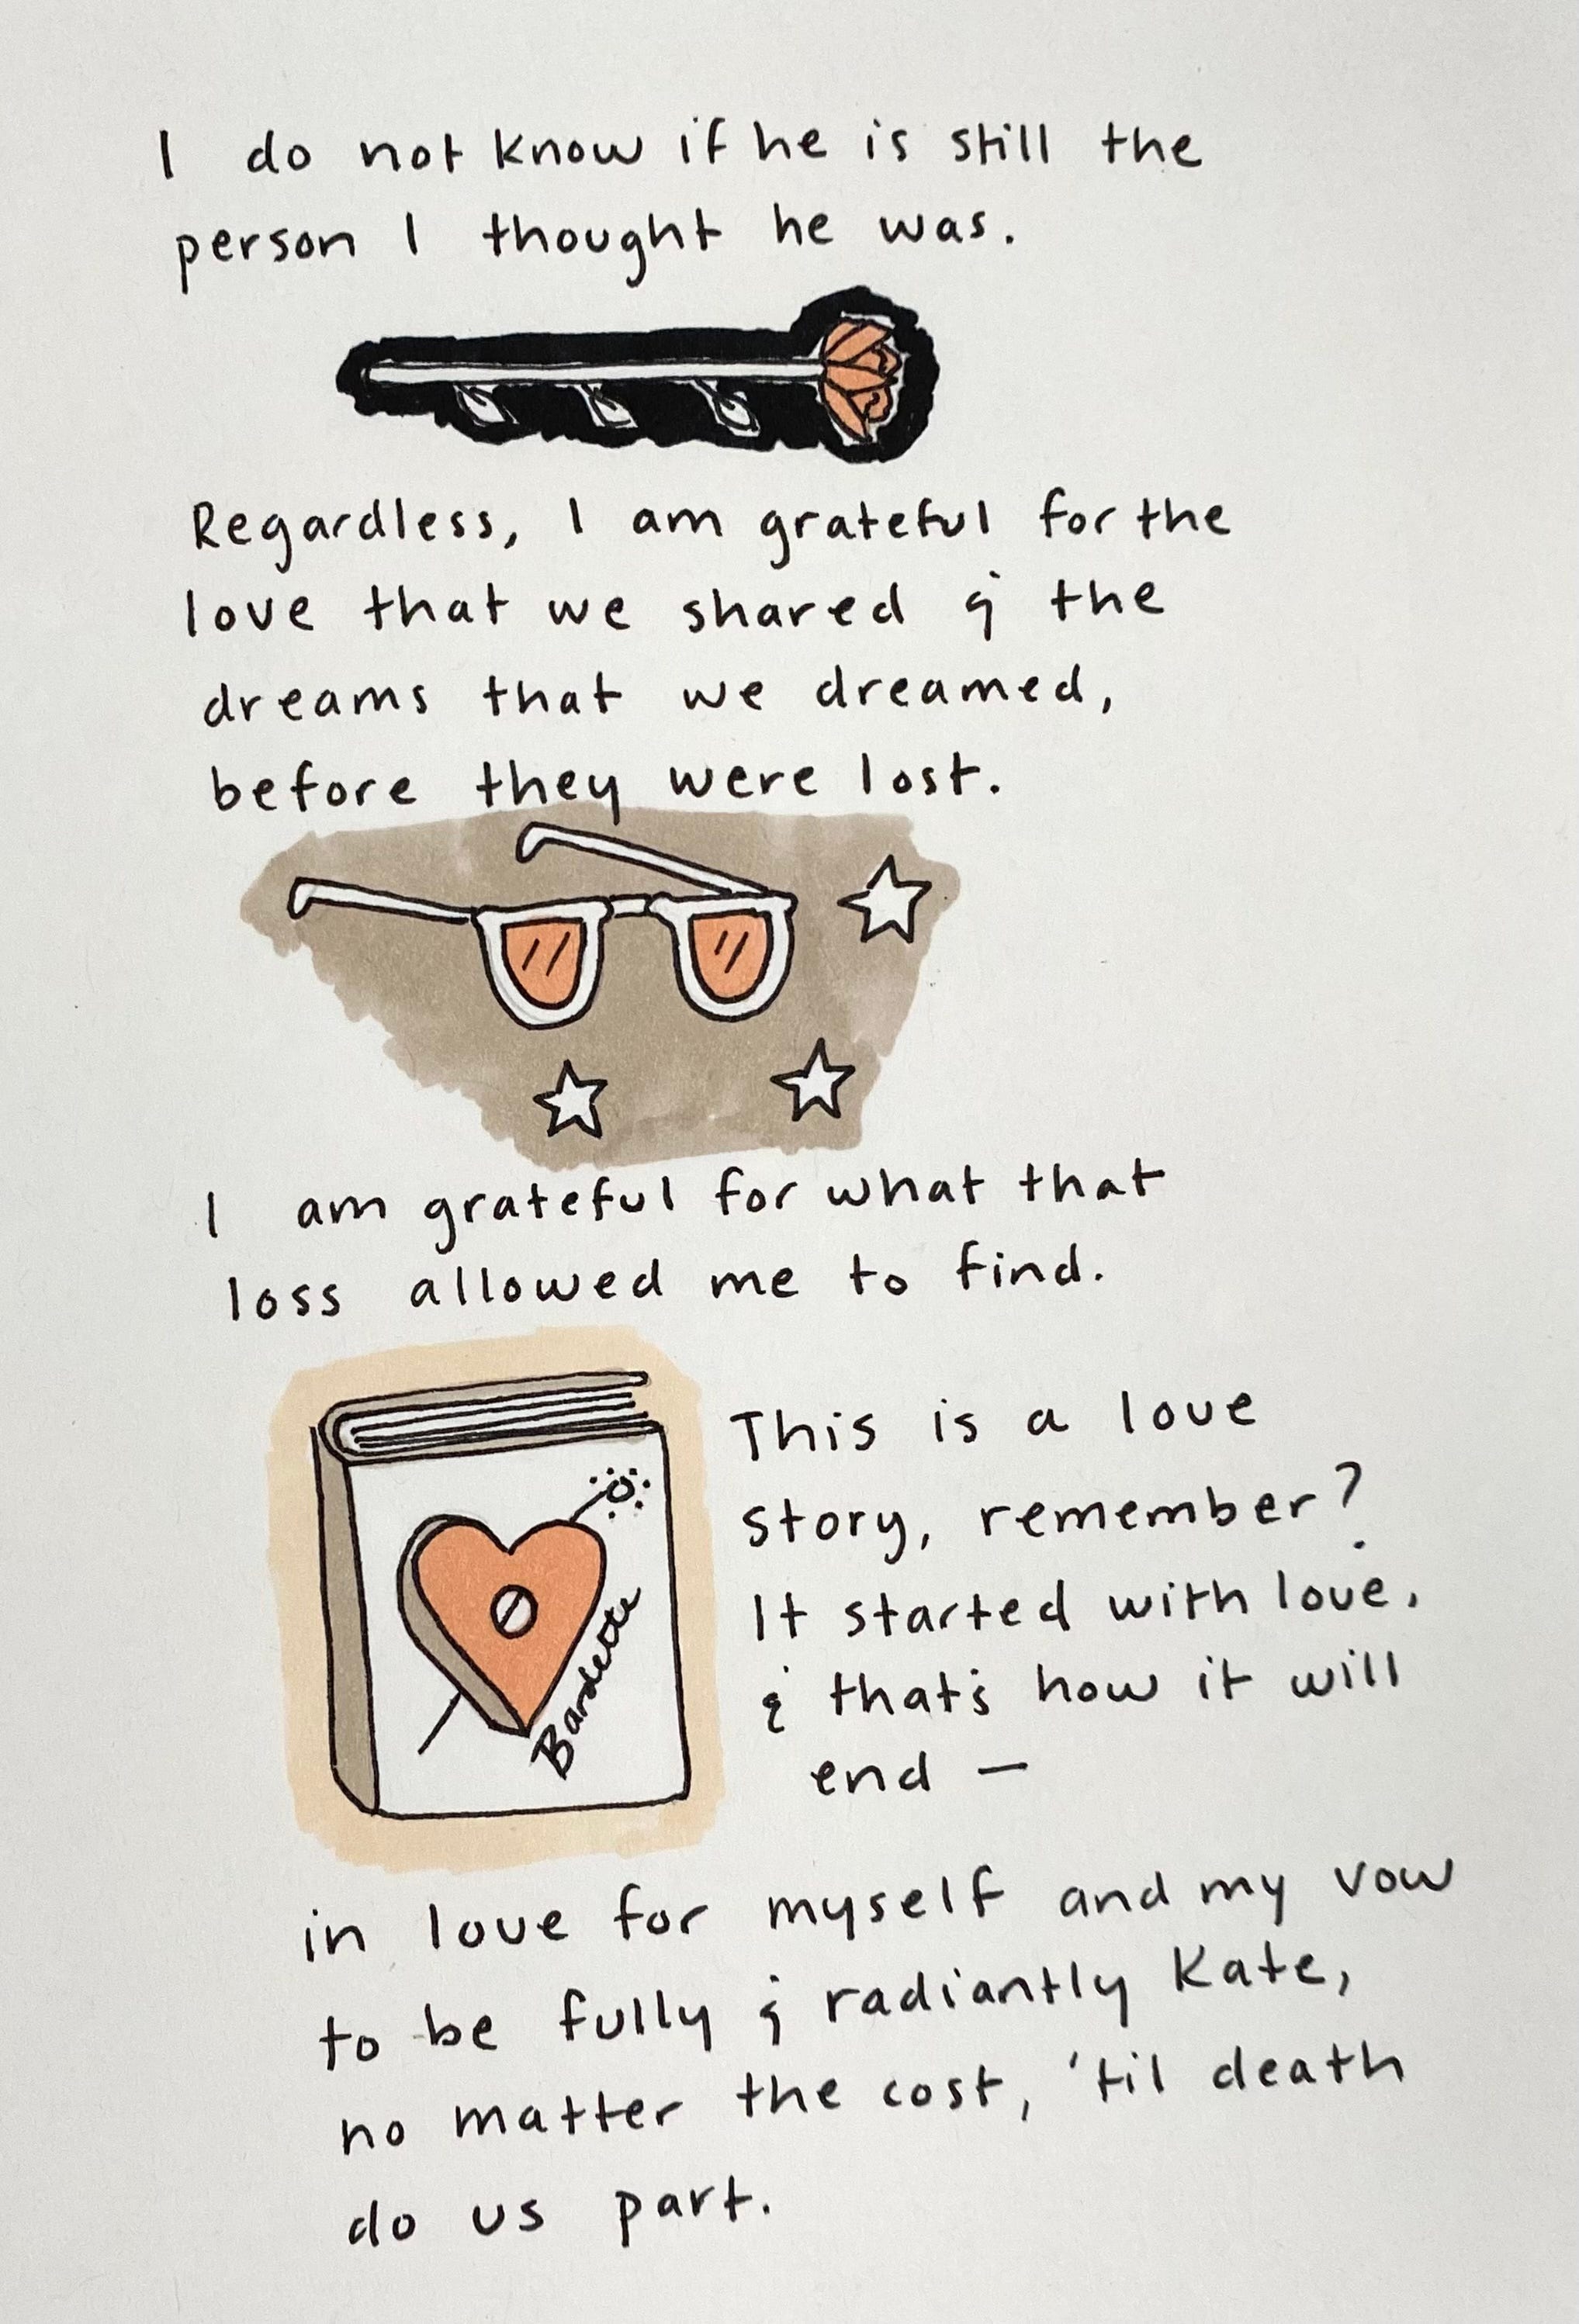 I do not know if he is still the
person I thought he was.
Regardless, I am grateful for the
love that we shared & the
dreams that we dreamed,
before they were lost.
I am grateful for what that
loss allowed me to find.
This is a love
story, remember?
It started with love,
& that's how it will
end —
Bardette
in love for myself and my vow
to be fully & radiantly Kate,
no matter the cost, 'til death
do us part.